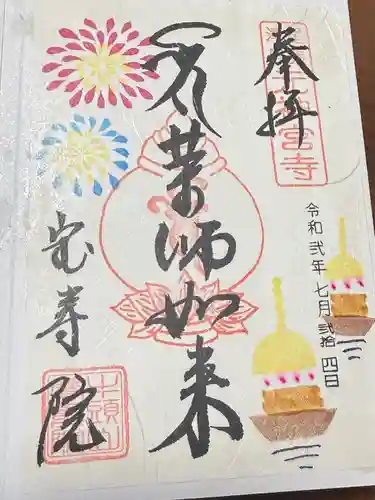 奉拝
令和弐年七月弐拾四日
薬師如来
宝寿院